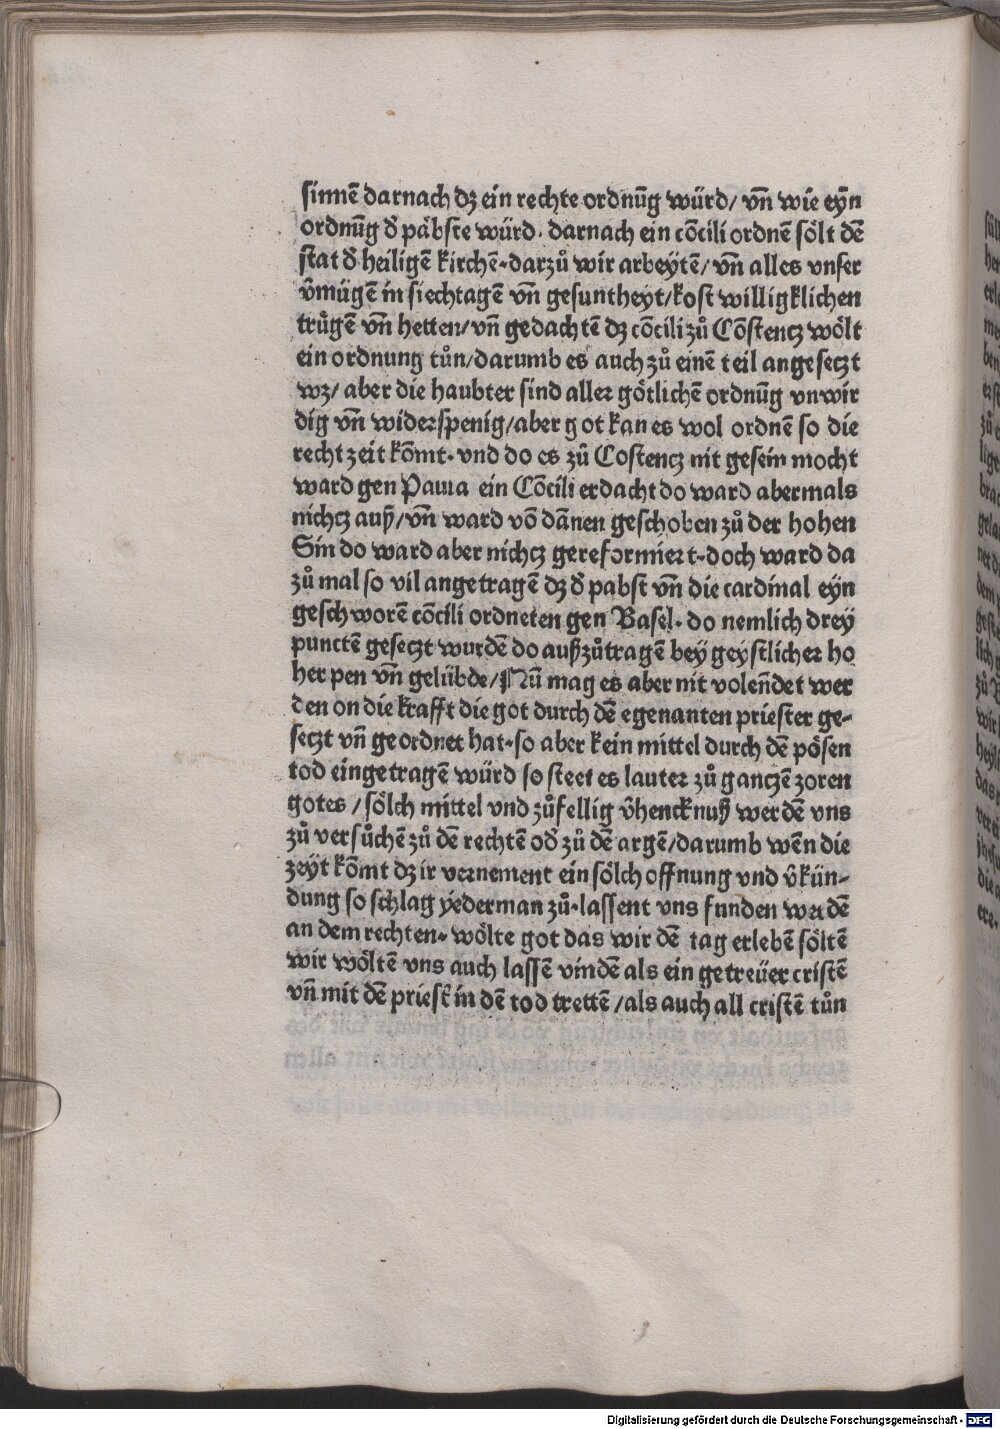 sinnē darnach dz ein rechte ordnūg würd/ vn̄ wie eyn̄
ordnūg d̄ päbste würd. darnach ein cōcili ordnē sölt dē
stat d̄ heiligē kirchē. darzů wir arbeytē/ vn̄ alles vnser
v̄mügē in siechtagē vn̄ gesuntheyt/ kost willigklichen
trůgē vn̄ hetten/ vn̄ gedachtē dz cōcili zů Cōstencz wölt
ein ordnung tůn/ darumb es auch zů einē teil angeseczt
wz/ aber die haubter sind aller götlichē ordnūg vnwir
dig vn̄ widerspenig/ aber got kan es wol ordnē so die
recht zeit kōmt. vnd do es zů Costencz nit gesein mocht
ward gen Pauia ein Cōcili erdacht do ward abermals
nichcz auß/ vn̄ ward vō dānen geschoben zů der hohen
Sin do ward aber nichcz gereformiert. doch ward da
zů mal so vil angetragē dz d̄ pabst vn̄ die cardinal eyn
geschworē cōcili ordneten gen Basel. do nemlich drey
punctē geseczt wurdē do außzůtragē beÿ geystlicher ho
her pen vn̄ gelübde/ Nū mag es aber nit volēndet wer
den on die krafft die got durch dē egenanten priester ge-
seczt vn̄ geordnet hat. so aber kein mittel durch dē pösen
tod eingetragē würd so steet es lauter zů ganczē zoren
gotes / sölch mittel vnd zůfellig v̄hencknuß werdē vns
zů versůchē zů dē rechtē od̄ zů dē argē/ darumb wēn die
zeÿt kōmt dz ir vernement ein sölch offnung vnd v̄kün-
dung so schlag ÿederman zů. lassent vns funden werdē
an dem rechten. wölte got das wir dē tag erlebē söltē
wir wöltē vns auch lassē vindē als ein getreüer cristē
vn̄ mit dē priest̄ in dē tod trettē/ als auch all cristē tůn
Digitalisierung gefördert durch die Deutsche Forschungsgemeinschaft - DFG